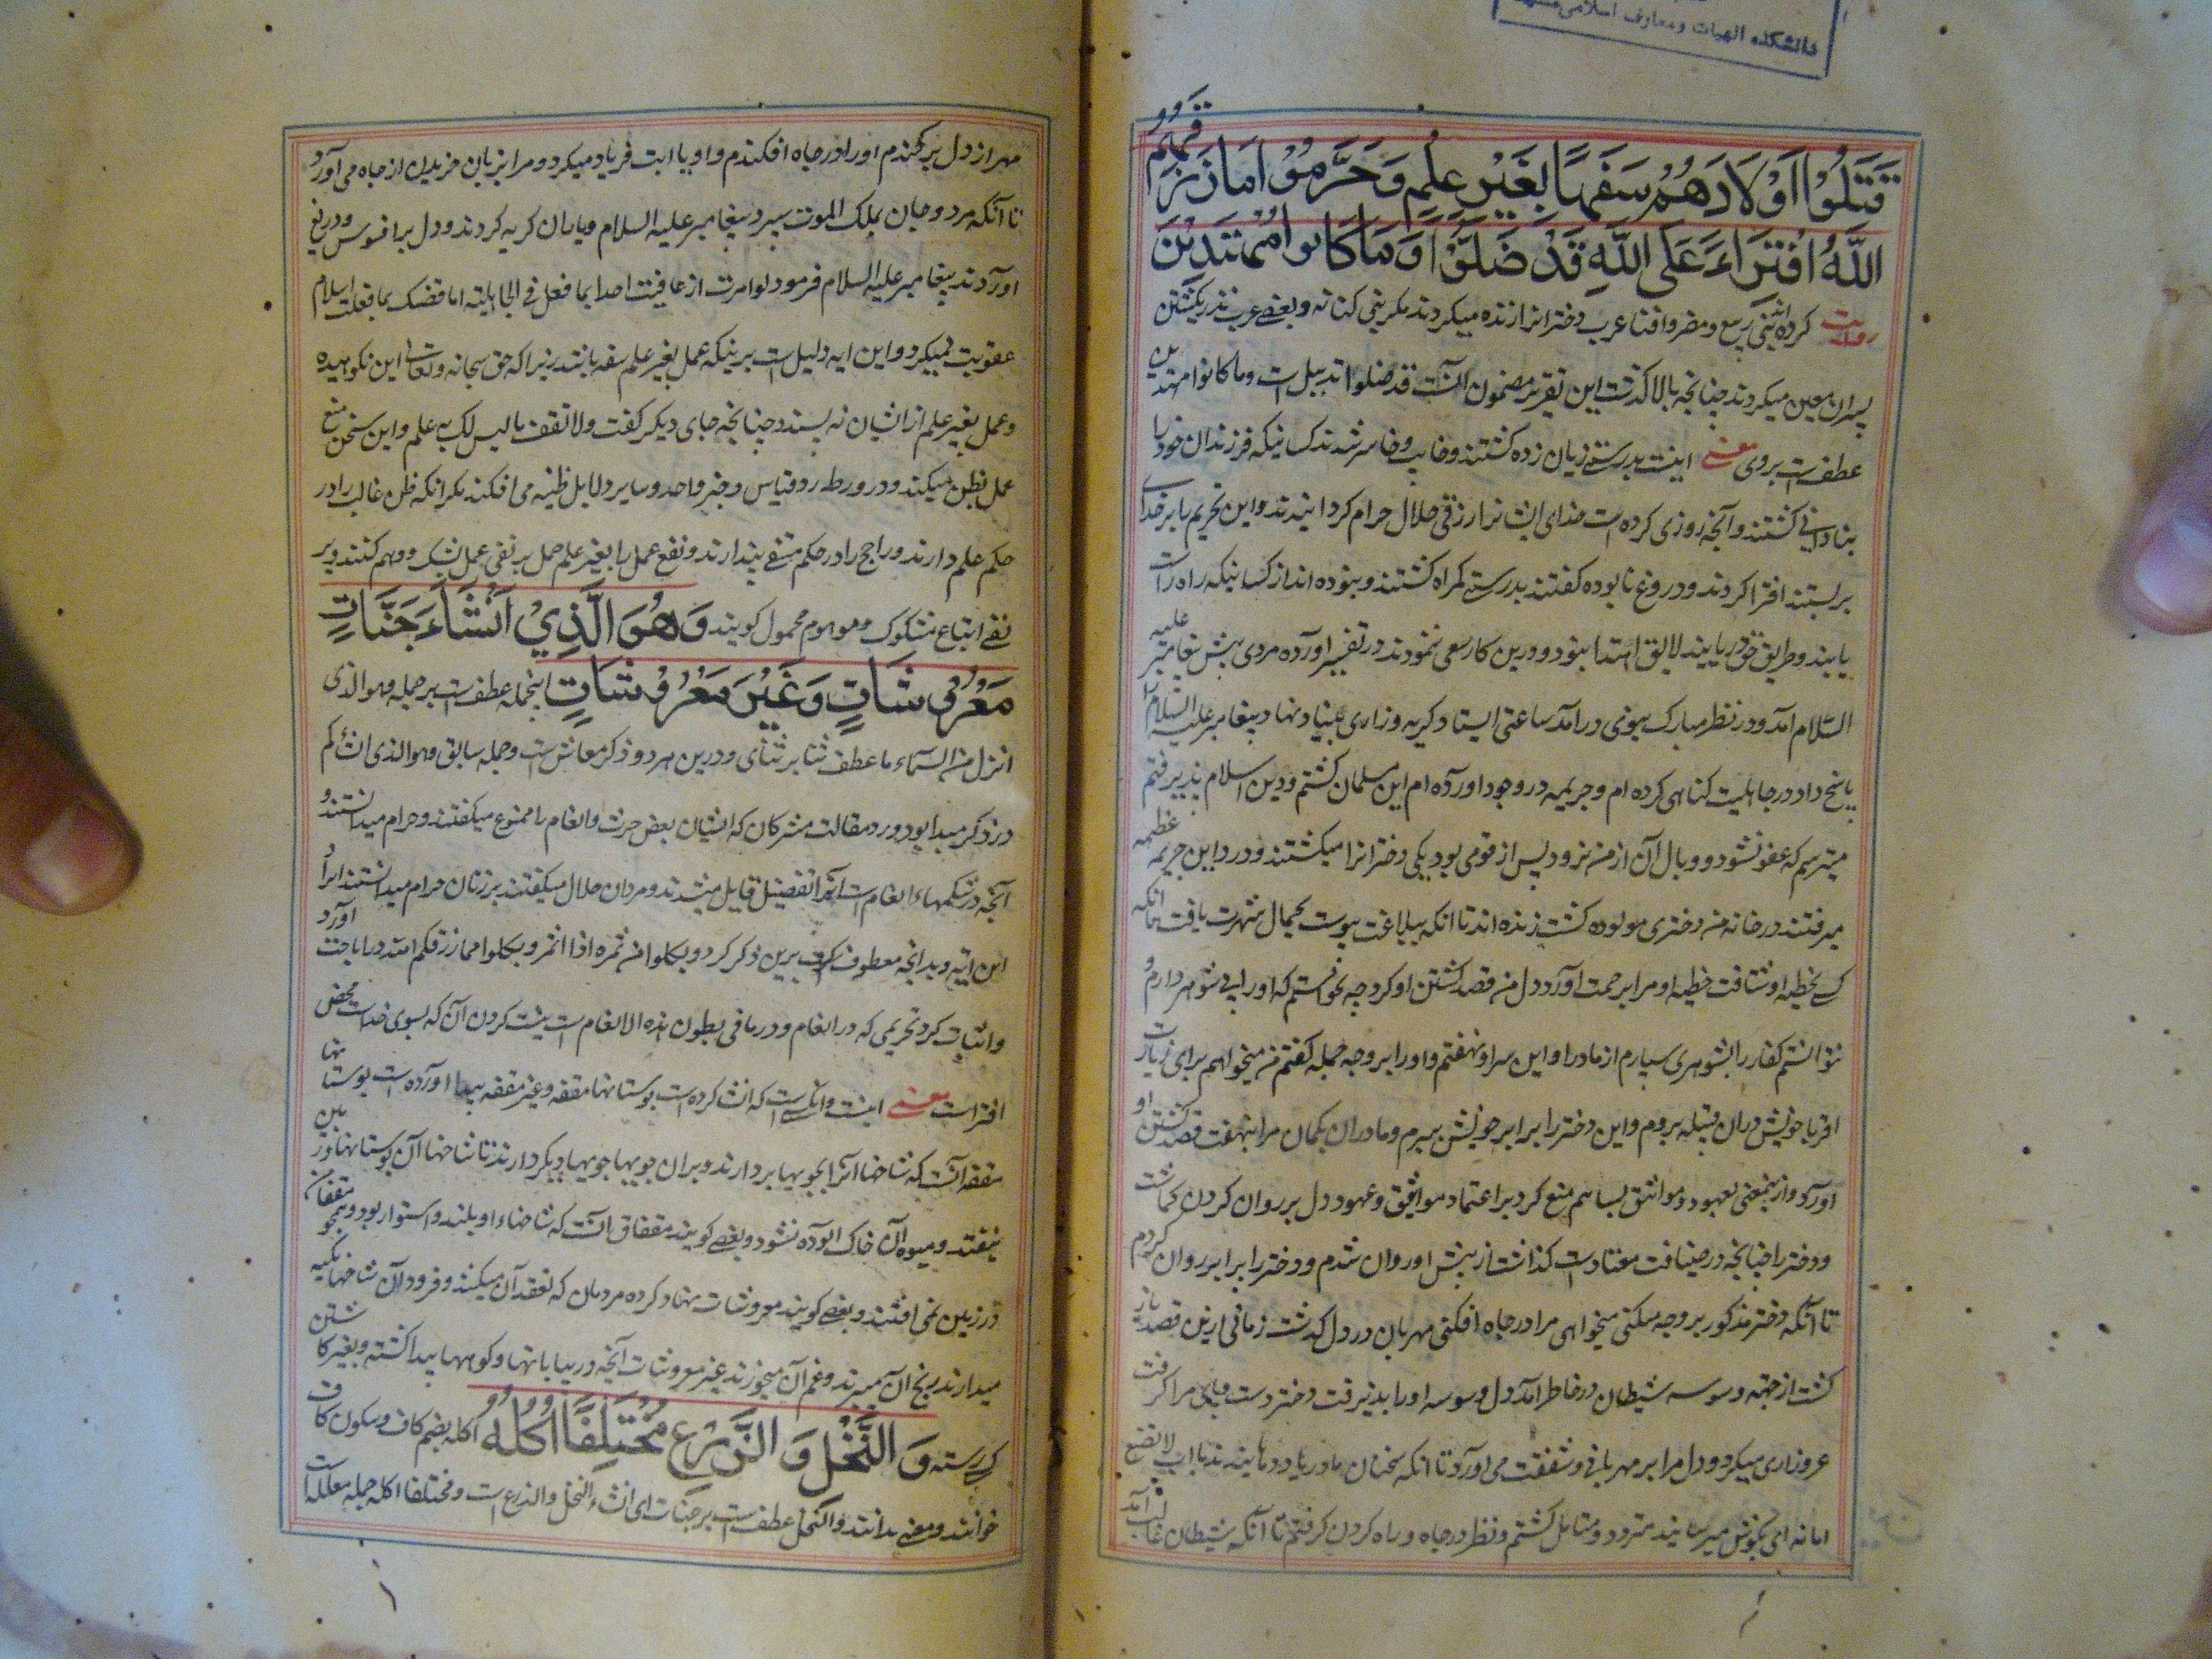 دانشکده الهیات ومعارف اسلامی مشهد
قَتَلُوْا اَوْلَادَهُمْ سَفَهًا بِغَيْرِ عِلْمٍ وَحَرَّمُوْا مَا رَزَقَهُمُ
اللّٰهُ افْتِرَاءً عَلَى اللّٰهِ قَدْ ضَلُّوْا وَمَا كَانُوا مُهْتَدِيْنَ
روایت کرده ربیع ومضر عرب دخترانرا زنده میکردند مکر بنی کنانه وبعضے عرب
پسران معین میکردند چنانچه بالا کذشت این تقریر مضمون آنست قد ضلوا تذییل است وما کانوا مهتدین
عطف است بروی معنے اینست بدرستے زیان زده کشتند وخایب وخاسر شدند کسانیکه فرزندان خود را
بنادانی کشتند وآنچه روزی کرده است خدای ایشانرا از رزق حلال حرام کردانیدند واین تحریم را بر خدا
بربستند افترا کردند ودروغ نابوده کفتند بدرستے کمراه کشتند ونبوده اند از کسانیکه راه راست
یابند وطریق حق دریابند لایق اهتدا نبود ودرین کار سعی نمودند در تفسیر آورده مردی پیش پیغامبر علیه
السلام آمد ودر نظر مبارک نبوی درآمد ساعتی ایستاد کریه وزاری بنیاد نهاد پیغامبر علیه السلام
پاسخ داد در جاهلیت کناهی کرده ام وجریمه در وجود آورده ام این مسلمان کشتم ودین اسلام پذیرفتم
میترسم که عفو نشود ووبال آن از من نرود پس از قومی بود یکی دخترانرا میکشتند ودر این جریمه عظیمه
میرفتند در خانه من دختری مولوده کشت زنده تا آنکه ببلاغت پیوست بجمال شهرت یافت تا آنکه
کسے بخطبه او شتافت خطبه او مرا برحمت آورد دل من قصد کشتن او کرد چه نخواستم که او را بی شوهر دارم و
نتوانستم کفار را بشوهری سپارم از مادر او این سر او نهفتم واو را بر وجه حیله کفتم من میخواهم برای زیارت
اقربا خویش در آن قبیله بروم واین دختر را برابر خویش ببرم ومادر آن بکمان مرا نهفت قصد کشتن او
آورد واز بعهود ومواثیق بسا هم منع کرد بر اعتماد مواثیق وعهود دل بر روان کردن کماشت
ودختر را چنانچه در ضیافت معتاد است کذاشت از پیش او روان شدم ودختر را برابر روان کردم
تا آنکه دختر مذکور بر وجه میخواهی مرا در چاه افکنی مهربان در دل کذشت زمانی ازین قصد باز
کشت از وسوسه شیطان در خاطر آمد دل وسوسه او را پذیرفت دختر دست وپای مرا کرفت
وزاری میکرد ودل مرا بر مهربانی وشفقت می آورد تا آنکه سخنان مادر یا ابت لا تضیع
امانة امی بکوش میرسانید متردد ومتامل کشتم ونظر در چاه وراه کردن کرفتم تا آنکه شیطان غالب آمد
مهر از دل برکندم او را در چاه افکندم واو یا ابت فریاد میکرد ومرا بزبان خزیدن از چاه می آورد
تا آنکه مرد وجان بملک الموت سپرد پیغامبر علیه السلام ویاران کریه کردند ودل بر افسوس ودریغ
آوردند پیغامبر علیه السلام فرمود لو امرت ان عاقبت احدا بما فعل فی الجاهلیة بما فعلت اسلام
عقوبت نمیکرد واین ایه دلیل است برینکه عمل بغیر علم سفه باشد زیرا که حق سبحانه وتعالی این نکوهیده
وعمل بغیر علم از ایشان نه پسندد چنانچه جای دیکر کفت ولا تقف ما لیس لک به علم واین سخن منع
عمل بظن میکند ودر ورطه رد قیاس وخبر واحد وسایر دلایل ظنیه می افکند مکر آنکه ظن غالب را در
حکم علم دارند وراجح را در حکم متیقن پندارند ونفی عمل را بغیر علم حمل بر نفی عمل بشک ووهم کنند وبر
نفے اتباع مشکوک وموهوم محمول کویند وَهُوَ الَّذِيْ اَنْشَاَءَ جَنَّاتٍ
مَعْرُوْشَاتٍ وَغَيْرَ مَعْرُوْشَاتٍ اینجمله عطفست بر جمله وهو الذی
انزل من السماء ماء عطف ودرین هر دو ذکر معاش است وجمله سابق وهو الذی انشاکم
در ذکر مبدا بود ورد مقالت مشرکان که ایشان بعض حرث وانعام را ممنوع میکفتند وحرام میدانستند و
آنچه در شکمهاء انعام است انرا بتفصیل قایل میشدند ومردان حلال میکفتند بر زنان حرام میدانستند انرا
این ایه وبدانچه معطوف است برین ذکر کرد وبکلوا من ثمره اذا اثمر وبکلوا مما رزقکم الله در اباحت آورد
واثبات کرد تحریمی که در انعام ودر ما فی بطون هذه الانعام است نسبت کردن آن که بسوی خداست محض
افتراست معنے اینست وآنکسے است که انشا کرده است بوستانها مقفه وغیر مقفه پیدا آورده است بوستانها
مقفه آنست که شاخها آنرا بچوبها بردارند وبران چوبها چوبها دیکر دارند تا شاخها آن بوستانها در زمین
نیفتد ومیوه آن خاک آلوده نشود وبعضے کویند مقفاة آنست که شاخهاء او بلند واستوار بود
در زمین نمی افتند وبعضے کویند معروشات نهاد کرده مردمان که تعقد آن میکنند وفرود آن شاخها تکیه
میدارند رنج آن میبرند وغم آن میخورند غیر معروشات آنچه در بیابانها وکوهها پیدا کشته وبغیر کاشتن
کسے رسته وَ النَّخْلَ وَ الزَّرْعَ مُخْتَلِفًا اُكُلُهُ اکله بضم کاف وسکون کاف
خوانند ومعنے بدانند والنخل عطف است بر جنات ای انشاء النخل والزرع است ومختلفا اکله جمله معلله است